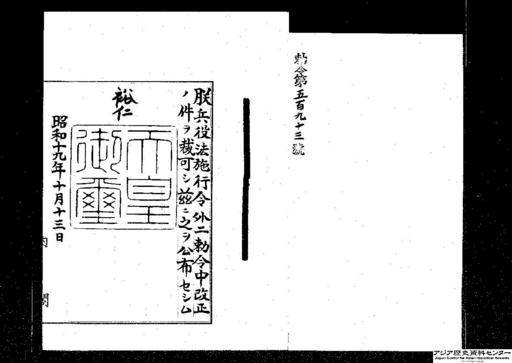 勅令第五百九十三號
朕兵役法施行令外二勅令中改正
ノ件ヲ裁可シ茲ニ之ヲ公布セシム
裕仁
天皇
御璽
昭和十九年十月十三日
内閣
アジア歴史資料センター
Japan Center for Asian Historical Records